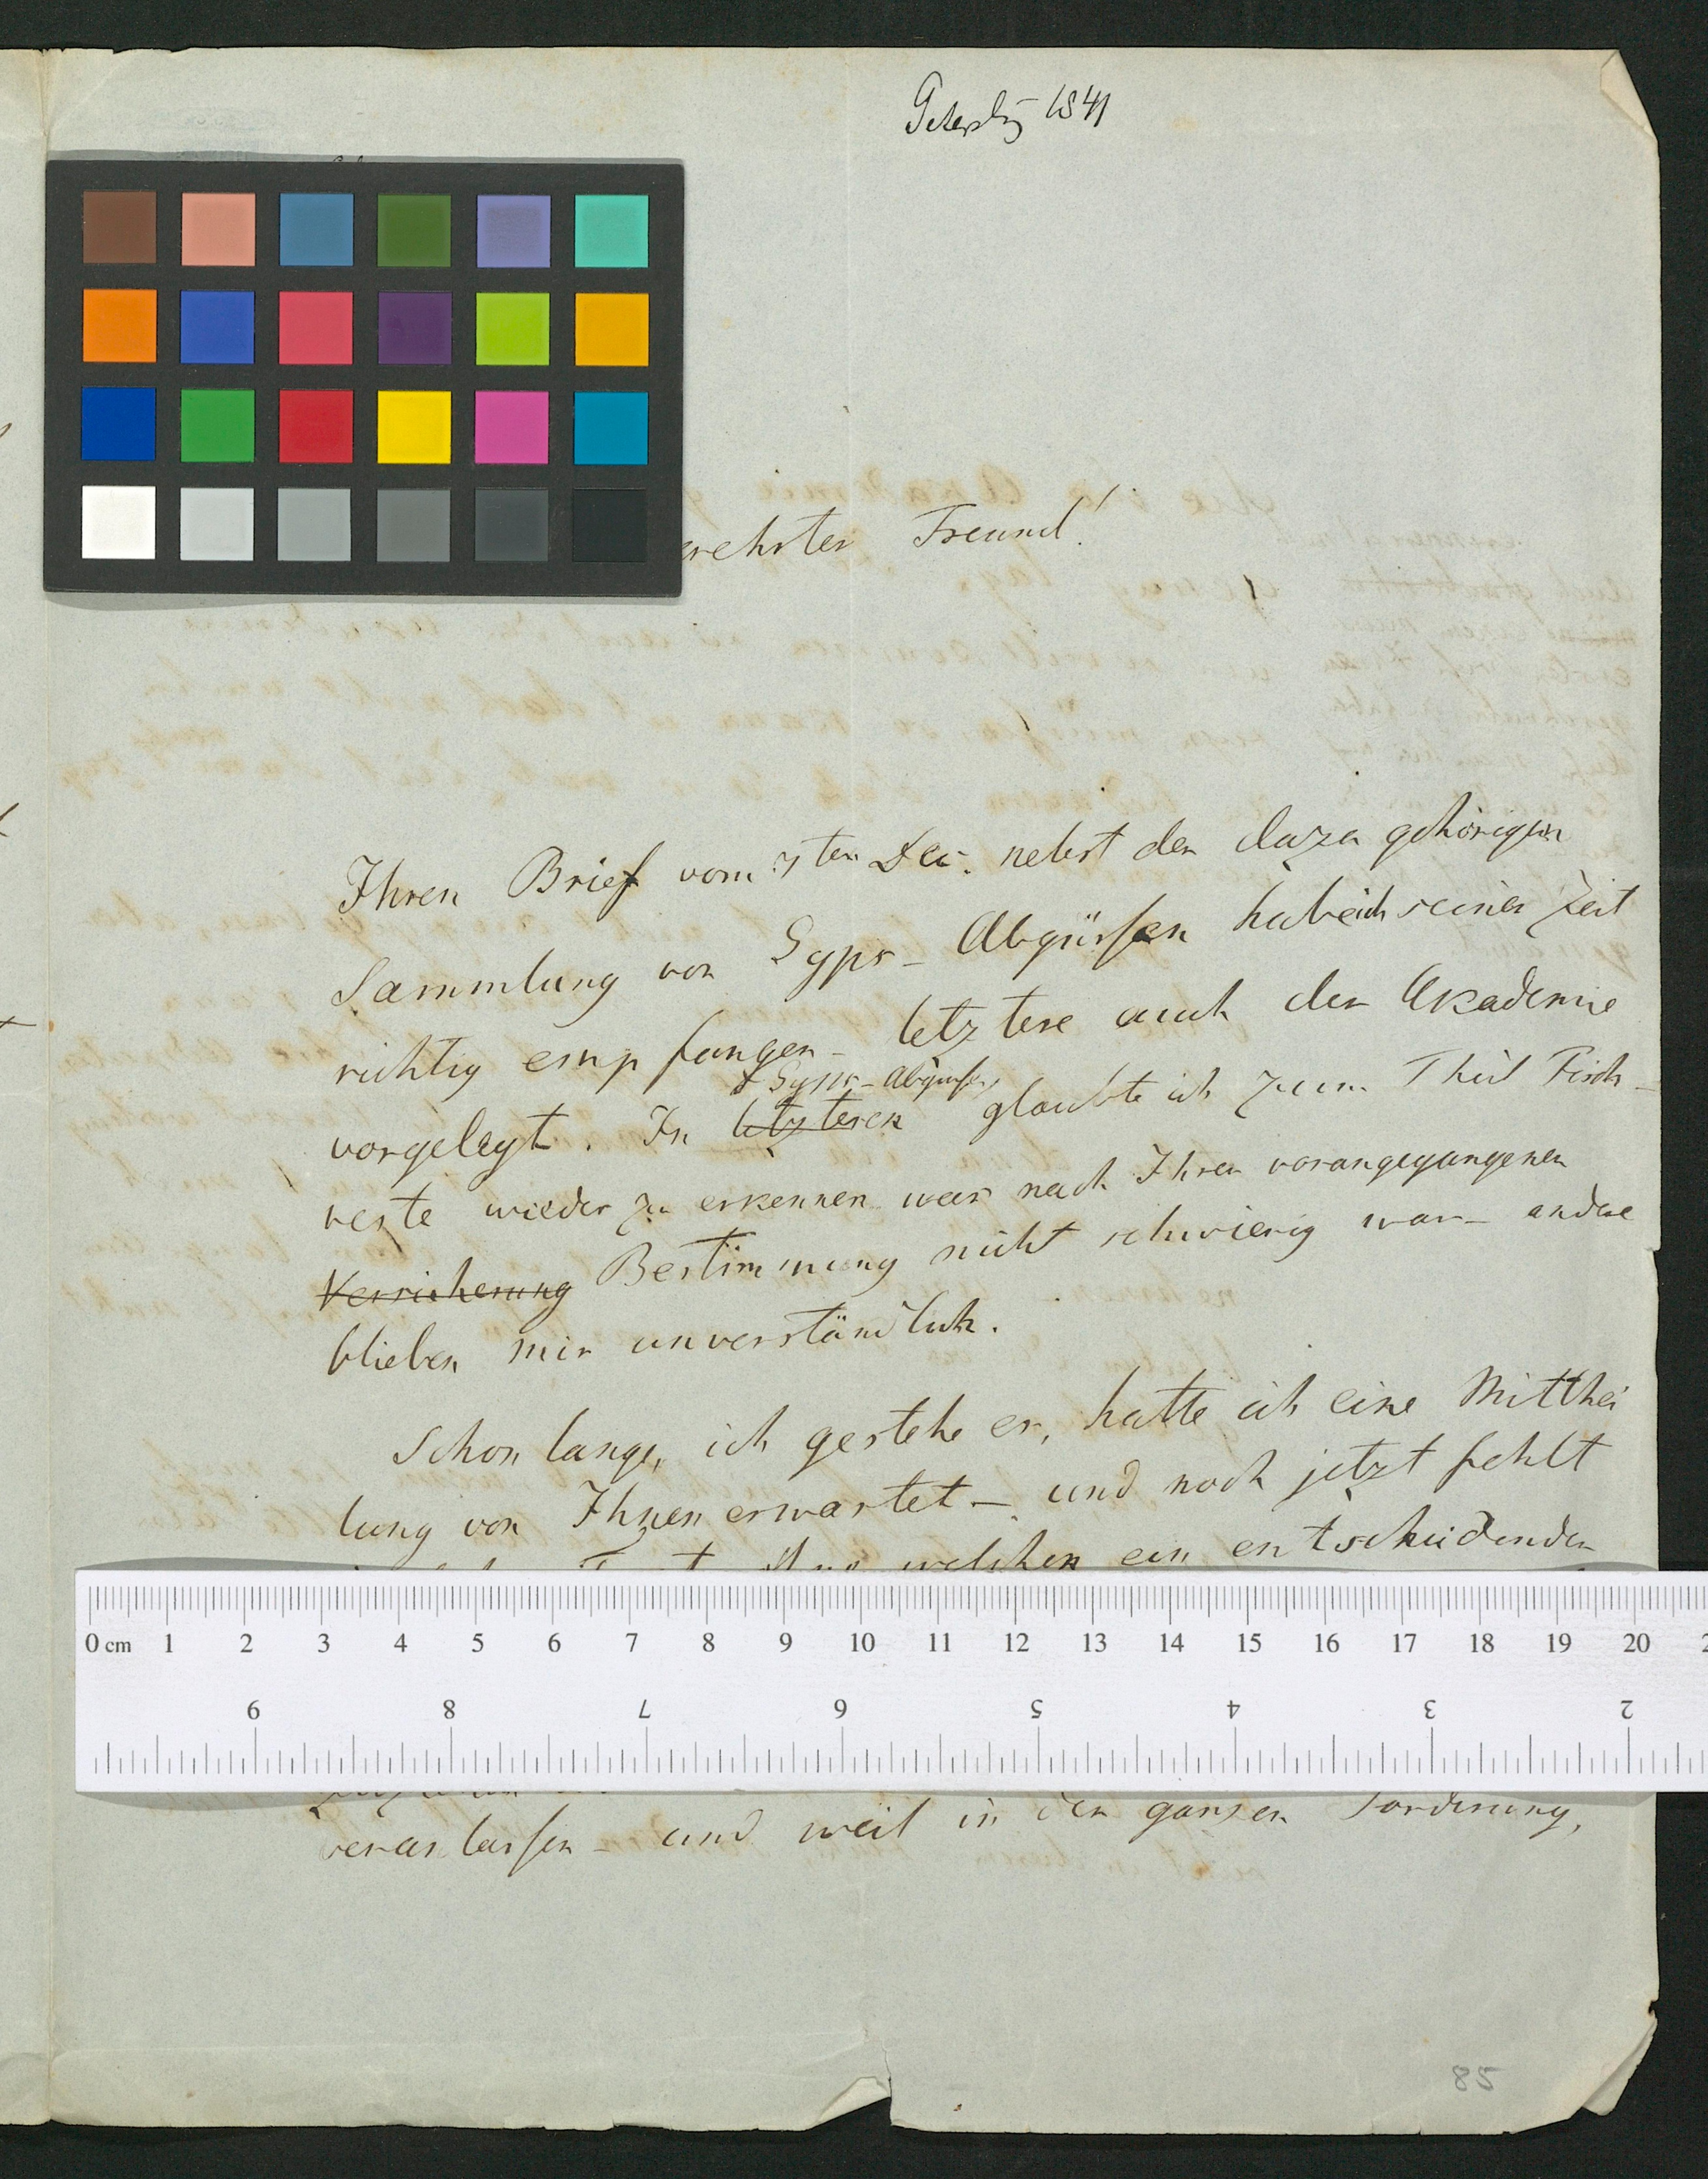 Petersbg 1841
erehrter Freund!
Ihren Brief vom 7ten Dec. nebst der dazu gehörigen
Sammlung von Gyps-Abgüssen habe ich seiner Zeit
richtig empfangen – letztere auch der Akademie
Gyps-Abgüssen
vorgelegt. In letzteren glaubte ich zum Theil Fisch-
reste wieder zu erkennen was nach Ihrer vorangegangenen
Versicherung Bestimmung nicht schwierig war – andere
blieben mir unverständlich.
Schon lange, ich gestehe es, hatte ich eine Mitthei
lung von Ihnen erwartet – und noch jetzt fehlt
welchen ein entscheidender
0 cm 1 2 3 4 5 6 7 8 9 10 11 12 13 14 15 16 17 18 19 20
9 8 7 6 5 4 3 2
veranlassen – und weil in der ganzen Forderung,
85